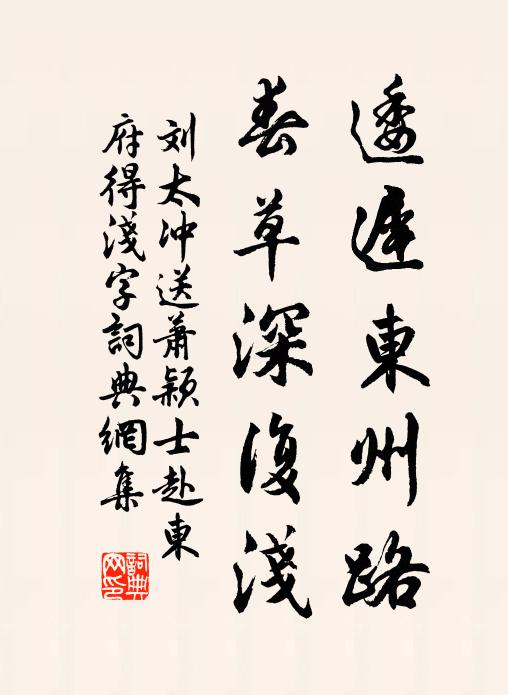 逶遲東州路
春草深復淺
刘太冲送蕭颖士赴東
府得淺字詞典網集
詞典网印